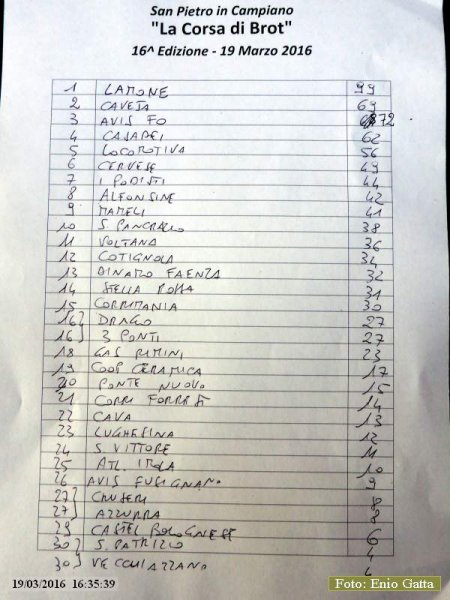 San Pietro in Campiano
"La Corsa di Brot"
16^ Edizione - 19 Marzo 2016
1 LAMONE 99
2 CAVEJA 69
3 AVIS FO 72
4 CASADEI 62
5 LOCOMOTIVA 56
6 CERVESE 49
7 I PODISTI 44
8 ALFONSINE 42
9 MAMELI 41
10 S. PANCRAZIO 38
11 VOLTANA 36
12 COTIGNOLA 34
13 DINAMO FAENZA 32
14 STELLA ROSSA 31
15 CORRIMANIA 30
16 DRAGO 27
16 3 PONTI 27
18 GAS RIMINI 23
19 COOP CERAMICA 17
20 PONTE NUOVO 15
21 CORRI FORREST 14
22 CAVA 13
23 LUGHESINA 12
24 S. VITTORE 11
25 ATL. IMOLA 10
26 AVIS FUSIGNANO 9
27 8
27 AZZURRA 8
29 CASTEL BOLOGNESE 6
30 S. PATRIZIO 4
30 VECCHIAZZANO 4
19/03/2016 16:35:39
Foto: Enio Gatta